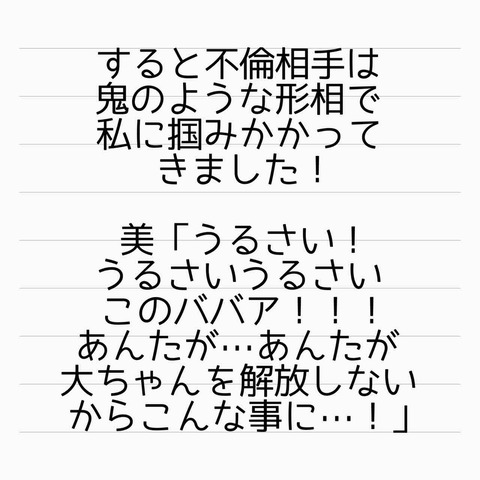 すると不倫相手は
鬼のような形相で
私に掴みかかって
きました！
美「うるさい！
うるさいうるさい
このババア！！！
あんたが…あんたが
大ちゃんを解放しない
からこんな事に…！」